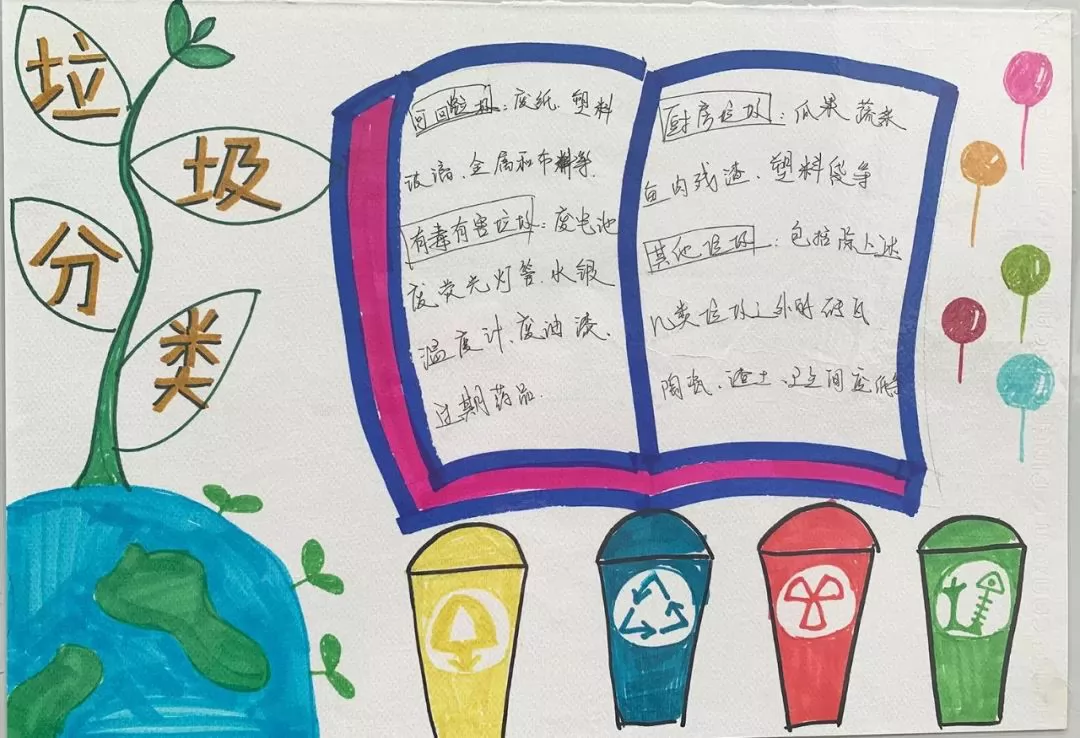 垃圾分类
可回收垃圾：废纸、塑料
玻璃、金属和布料等、
有毒有害垃圾：废电池
废荧光灯管、水银
温度计、废油漆、
过期药品.
厨房垃圾：瓜果蔬菜
鱼肉残渣、塑料袋等
其他垃圾：包括除上述
几类垃圾之外的砖瓦
陶瓷、渣土、卫生间废纸等